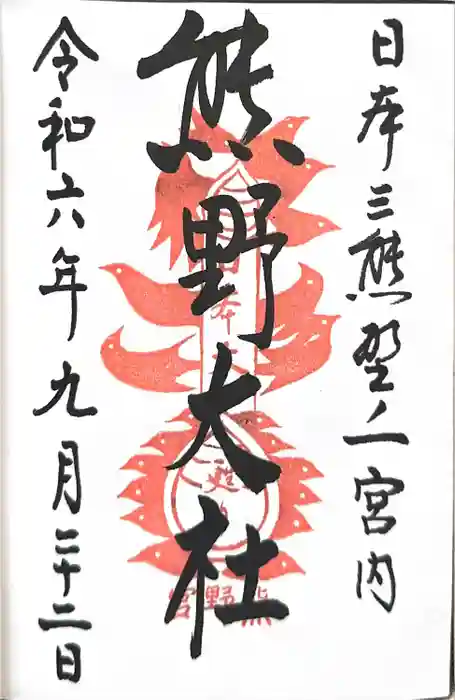 日本三熊野ノ一宮内
熊野大社
令和六年九月二十二日
熊野宮